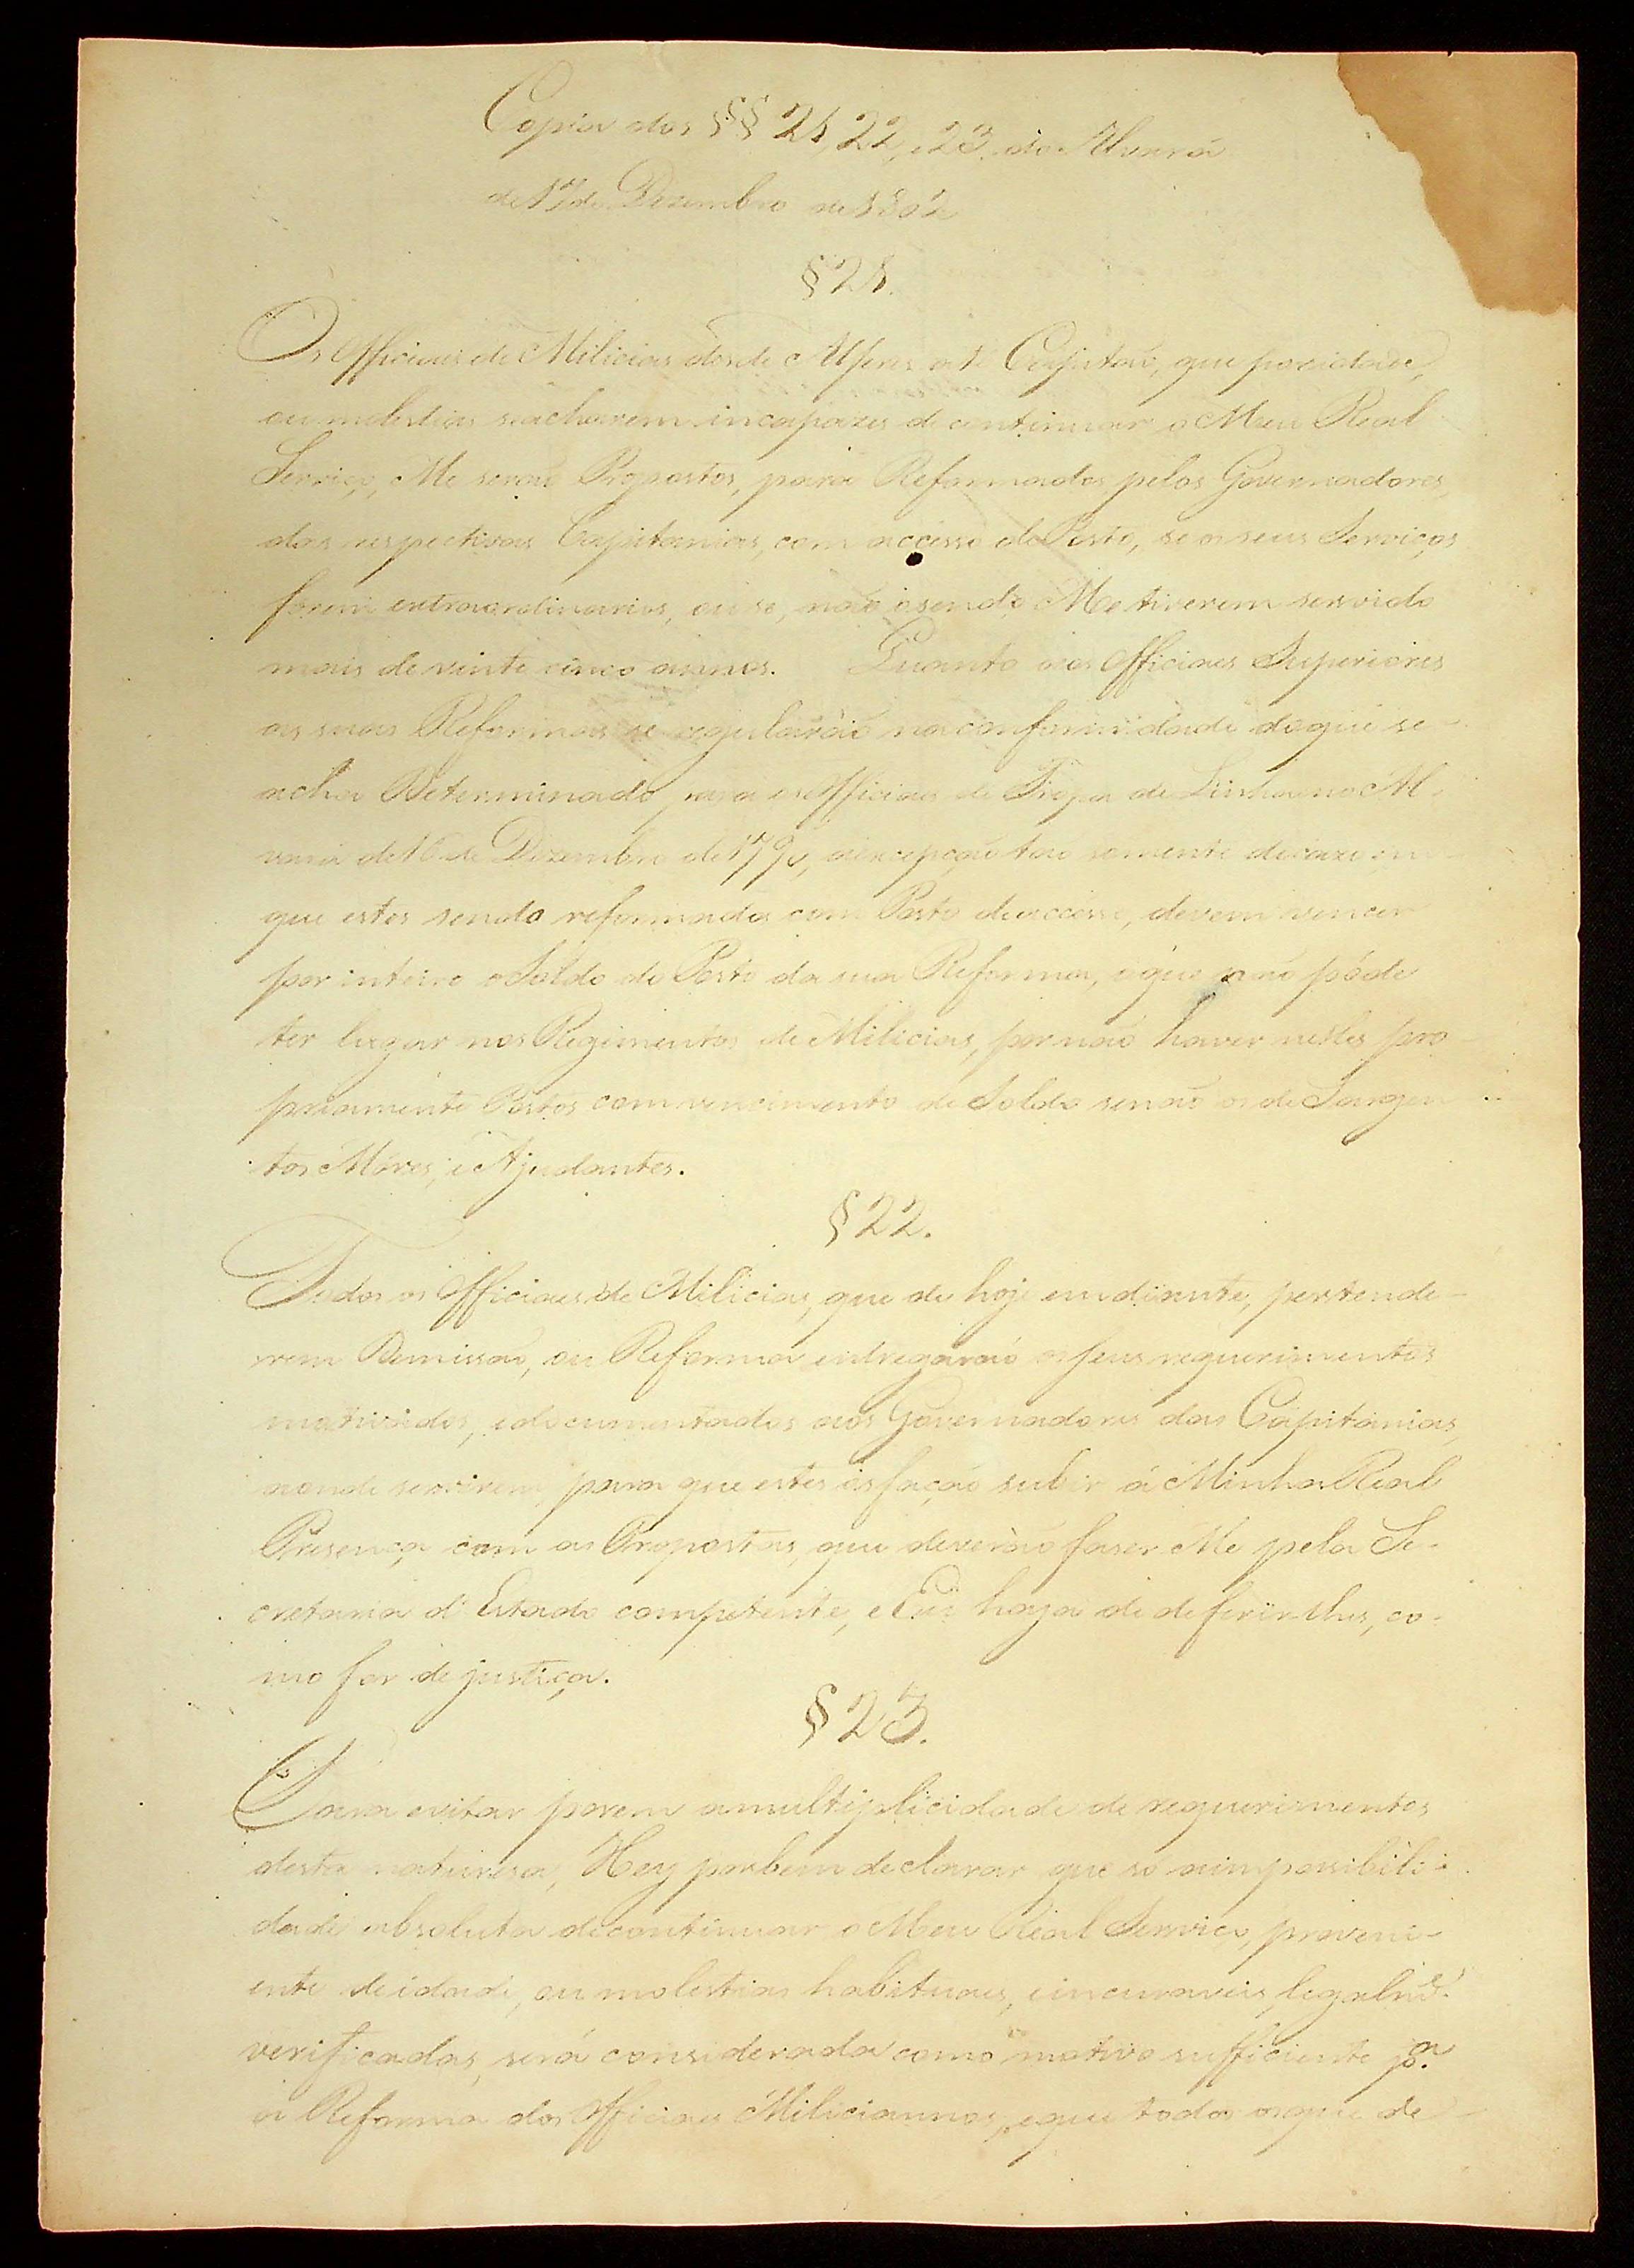 Copia dos §§ 21, 22, e 23. do Alvará
de 17 de Dezembro de 1802
§ 21.
Os Officiaes de Milicias desde o Alferes até Capitaõ, que por idade,
ou molestias se acharem incapazes de continuar o Meu Real
Serviço, Me seraõ Propostos, para Reformados pelos Governadores,
das respectivas Capitanias, com accesso de Posto, se os seus Serviços
forem extraordinarios, ou se, naõ o sendo, Me tiverem servido
mais de vinte cinco annos. Quanto aos Officiaes Superiores
as suas Reformas se regularáõ na conformidade do que se
acha Determinado para os Officiaes de Tropa de Linha no Al-
vará de 16 de Dezembro de 1790, a excepçaõ taõ somente do caso em
que estes sendo reformados com Posto de accesso, devem vencer
por inteiro o Soldo do Posto da sua Reforma, o que naõ póde
ter lugar nos Regimentos de Milicias, por naõ haver nelles pro-
priamente Postos com vencimento de Soldo senaõ os de Sargen-
tos Móres, e Ajudantes.
§ 22.
Todos os Officiaes de Milicias, que de hoje em diante, pertende-
rem Demissaõ, ou Reforma entregaráõ os seus requerimentos
motivados, e documentados aos Governadores das Capitanias,
aonde servirem, para que estes os façaõ subir á Minha Real
Presença com as Propostas, que deveráõ faser Me pela Se-
cretaria d'Estado competente, e Eu haja de deferir-lhes, co-
mo for de justiça.
§ 23.
Para evitar porem a multiplicidade de requerimentos
desta naturesa, Hey por bem declarar que só a impossibili-
dade absoluta de continuar o Meu Real Serviço, proveni-
ente de idade, ou molestias habituaes, e incuraveis, legalm.e
verificadas, será considerada como motivo sufficiente p.a
a Reforma dos Officiaes Miliciannos, e que todos os que de-